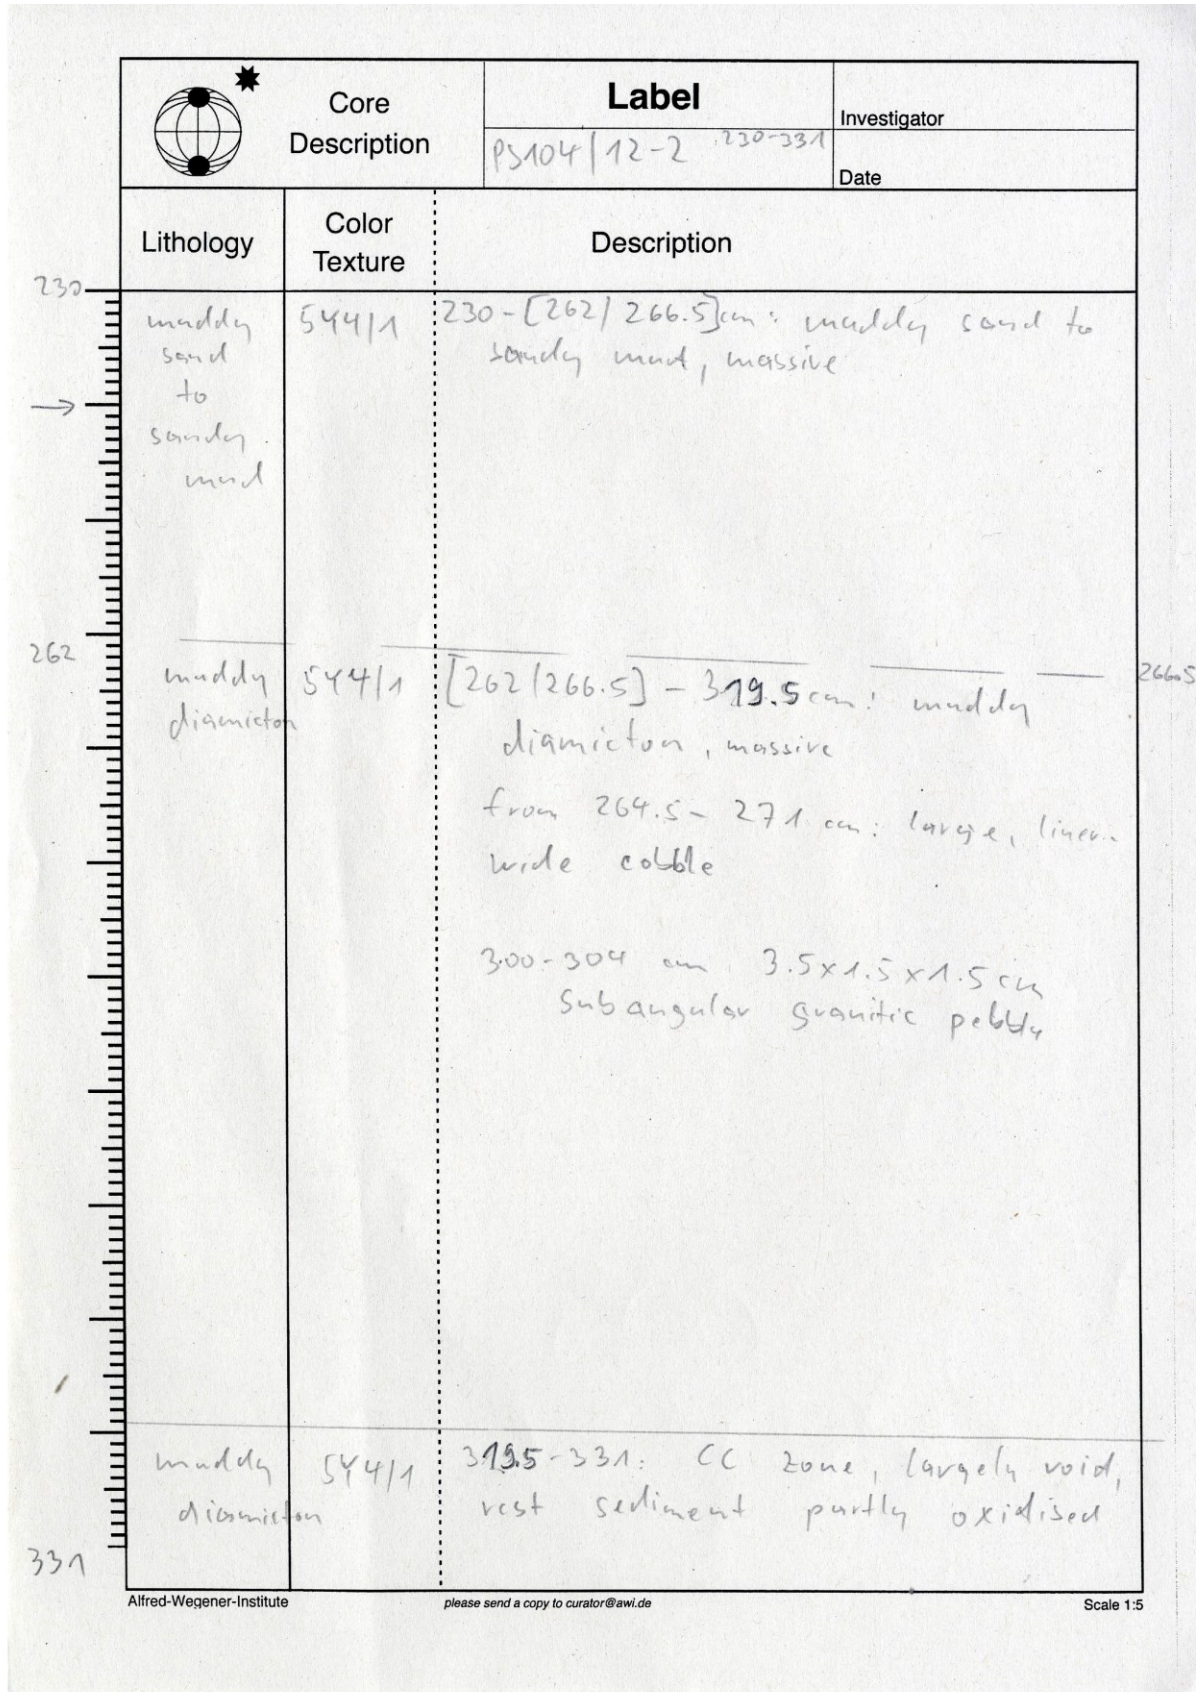 Core
Description
Label
PS104/12-2 230-331
Investigator
Date
Lithology
Color
Texture
Description
230
muddy
sand
to
sandy
mud
5Y4/1
230-[262/266.5]cm: muddy sand to
sandy mud, massive
262
266.5
muddy
diamicton
5Y4/1
[262/266.5] - 319.5 cm: muddy
diamicton, massive
from 264.5-271 cm: large, liner-
wide cobble
300-304 cm 3.5x1.5x1.5 cm
subangular granitic pebble
muddy
diamicton
5Y4/1
319.5-331: CC zone, largely void,
rest sediment partly oxidised
331
Alfred-Wegener-Institute
please send a copy to curator@awi.de
Scale 1:5